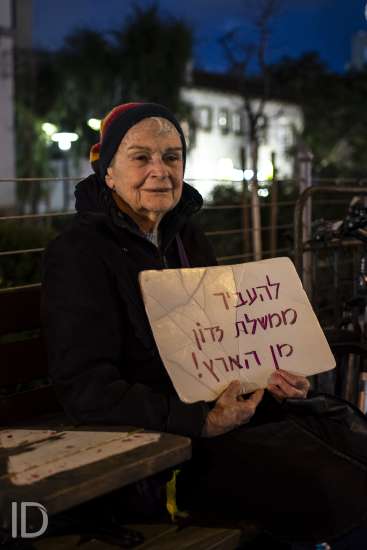 להעביר
ממשלת זדון
מן הארץ!
ID